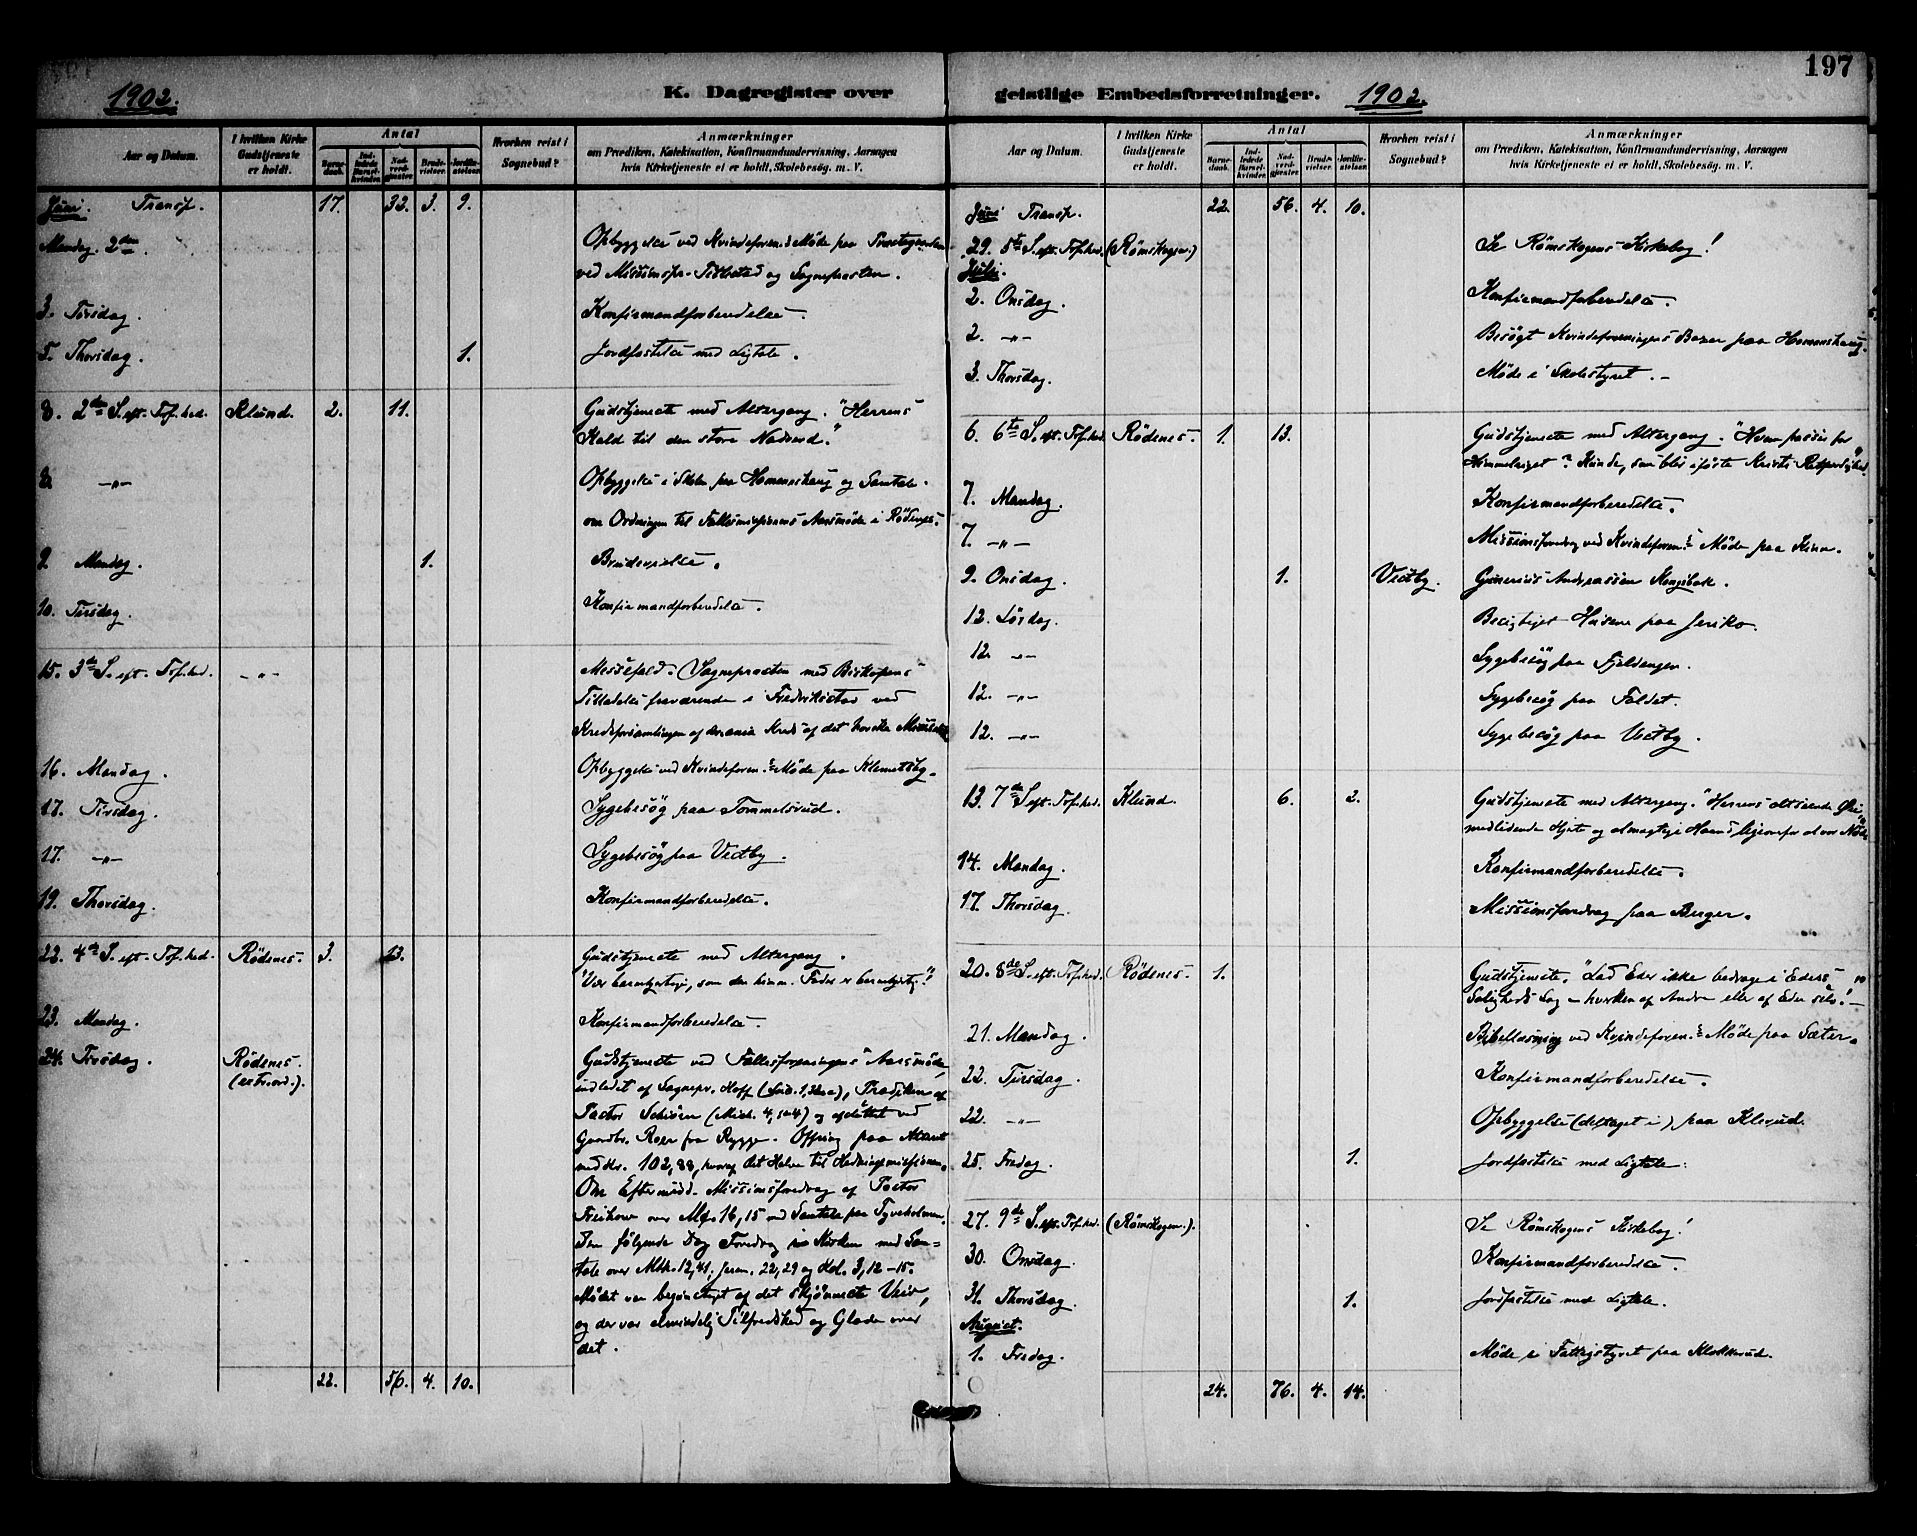 197
1902.
K. Dagregister over
Aar og Datum.
I hvilken Kirke Gudstjeneste er holdt.
Antal
Barnedaab.
Indledede Barselkvinder.
Nadverdgjester.
Brudevielser.
Jordfæstelser.
Hvorhen reist i Sognebud?
Anmærkninger
om Prædiken, Katekisation, Konfirmandundervisning, Aarsagen
hvis Kirketjeneste ei er holdt, Skolebesøg. m. V.
Juni. Transp. 17. 32. 3. 9.
Mandag 2den Opbyggelse ved Kvindeforen.s Møde paa
ved Missionspr. og Sognepræsten.
3. Tirsdag. Konfirmandforberedelse.
5. Thorsdag. 1. Jordfæstelse med Ligtale.
8. 2den S. eft. Tref.hed. Klund. 2. 11. Gudstjeneste med Altergang. "Herrens
Kald til den store Nadverd."
8. -"- Opbyggelse i Skolen paa Homenshaug og Samtale
om Ordningen til Fællesmissionens Aarsmøde i Rødenes.
9. Mandag. 1. Brudevielse.
10. Tirsdag. Konfirmandforberedelse.
15. 3de S. eft. Tref.hed. -"- Messefald. Sognepræsten med Biskopens
Tilladelse fraværende i Fredrikstad ved
Kredsforsamlingen af Kreds af det norske
16. Mandag. Opbyggelse ved Kvindeforen.s Møde paa Klemetsby.
17. Tirsdag. Sygebesøg paa Tommelsrud.
17. -"- Sygebesøg paa Vestby.
19. Thorsdag. Konfirmandforberedelse.
22. 4de S. eft. Tref.hed. Rødenes. 3. 13. Gudstjeneste med Altergang.
"Vær barmhjertige, som den himm. Fader er barmhjertig."
23. Mandag. Konfirmandforberedelse.
24. Tirsdag. Rødenes. Gudstjeneste ved Fællesforeningens Aarsmøde,
(extraord.). indledet af Sognepr. Hoff, Prædiken af
Pastor Schiøen (Mich. 4, 1-4) og afsluttet ved
Gaardbr. Roer fra Rygge. Offring paa Alteret
med Kr. 102,88, hvoraf det Halve til Hedningemissionen.
Om Eftermidd. Missionsforedrag af Pastor
over Mk. 16, 15 med Samtale paa Tyveholmen.
Den følgende Dag Foredrag i Kirken med Sam=
tale over Mtth. 12,41, Jerem. 22,29 og Kol. 3, 12-15.
Mødet var begunstiget af det skjønneste Veir,
og der var almindelig Tilfredshed og Glæde over
det.
22. 56. 4. 10.
geistlige Embedsforretninger. 1902.
Aar og Datum.
I hvilken Kirke Gudstjeneste er holdt.
Antal
Barnedaab.
Indledede Barselkvinder.
Nadverdgjester.
Brudevielser.
Jordfæstelser.
Hvorhen reist i Sognebud?
Anmærkninger
om Prædiken, Katekisation, Konfirmandundervisning, Aarsagen
hvis Kirketjeneste ei er holdt, Skolebesøg. m. V.
Juni Transp. 22. 56. 4. 10.
29. 5te S. eft. Tref.hed. (Rømskogen.) Se Rømskogens Kirkebog!
Juli.
2. Onsdag. Konfirmandforberedelse.
2. -"- Besøgt Kvindeforeningens Bazar paa Homenshaug.
3. Thorsdag. Møde i Skolestyret. -
6. 6te S. eft. Tref.hed. Rødenes. 1. 13. Gudstjeneste med Altergang. "Hvem passer for
Himmeriget? Kun de, som blev iførte Kristi Retfærdighed."
7. Mandag. Konfirmandforberedelse.
7. -"- Missionsforedrag ved Kvindeforen.s Møde paa
9. Onsdag. 1. Vestby. Gunerius Andreassen
12. Lørdag. Besigtiget Husene paa Jeriko.
12. -"- Sygebesøg paa Fjeldengen.
12. -"- Sygebesøg paa Faldet.
12. -"- Sygebesøg paa Vestby.
13. 7de S. eft. Tref.hed. Klund. 6. 2. Gudstjeneste med Altergang. "Herrens altseende Øie,
medlidende Hjerte og almægtige Haand ligeoverfor al vor Nød."
14. Mandag. Konfirmandforberedelse.
17. Thorsdag. Missionsforedrag paa Berger.
20. 8de S. eft. Tref.hed. Rødenes. 1. Gudstjeneste. "Lad Eder ikke bedrage i Eders
Saligheds Sag - hverken af Andre eller af Eder selv! -
21. Mandag. Bibellæsning ved Kvindeforen.s Møde paa Sæter.
22. Tirsdag. Konfirmandforberedelse.
22. -"- Opbyggelse (deltaget i) paa Klerud.
25. Fredag. 1. Jordfæstelse med Ligtale.
27. 9de S. eft. Tref.hed. (Rømskogen.). Se Rømskogens Kirkebog!
30. Onsdag. Konfirmandforberedelse.
31. Thorsdag. 1. Jordfæstelse med Ligtale.
August.
1. Fredag. Møde i Fattigstyret paa Klokkerud.
24. 76. 4. 14.